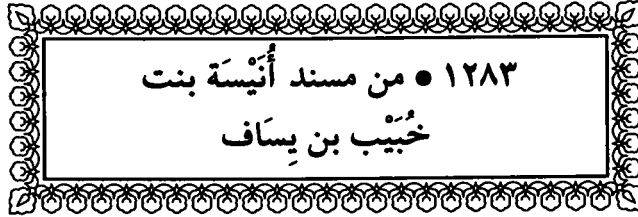 ١٢٨٣ • من مسند أُنَيْسَة بنت
خُبَيْب بن يِسَاف